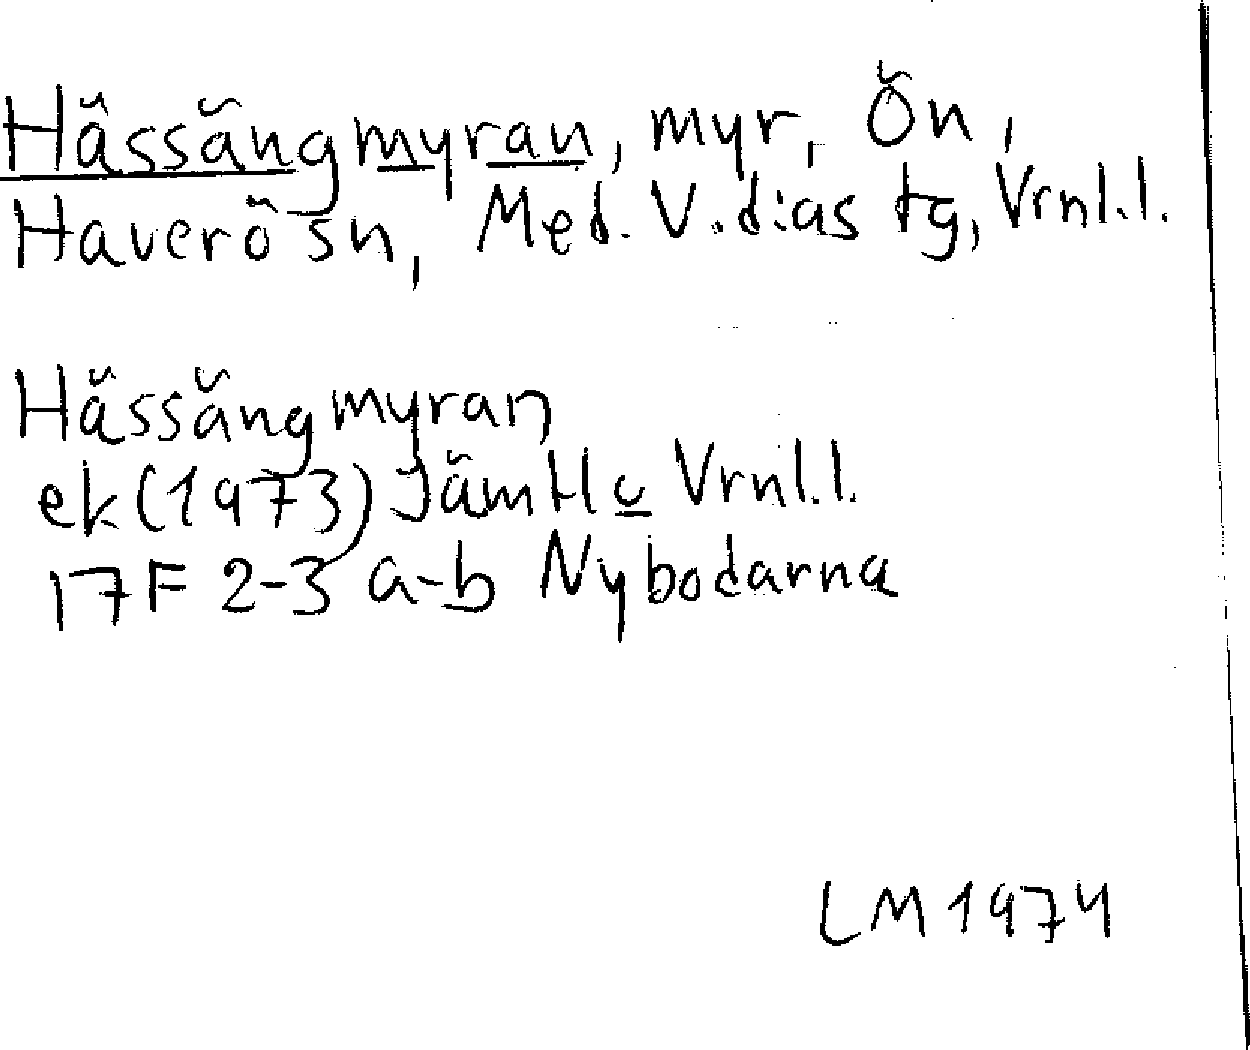 Hässängmyran, myr, Ön,
Haverö sn, Med. V.d:as tg, Vrnl.l.
Hässängmyran
ek (1973) Jämtl c Vrnl.l.
17F 2-3 a-b Nybodarna
LM 1974